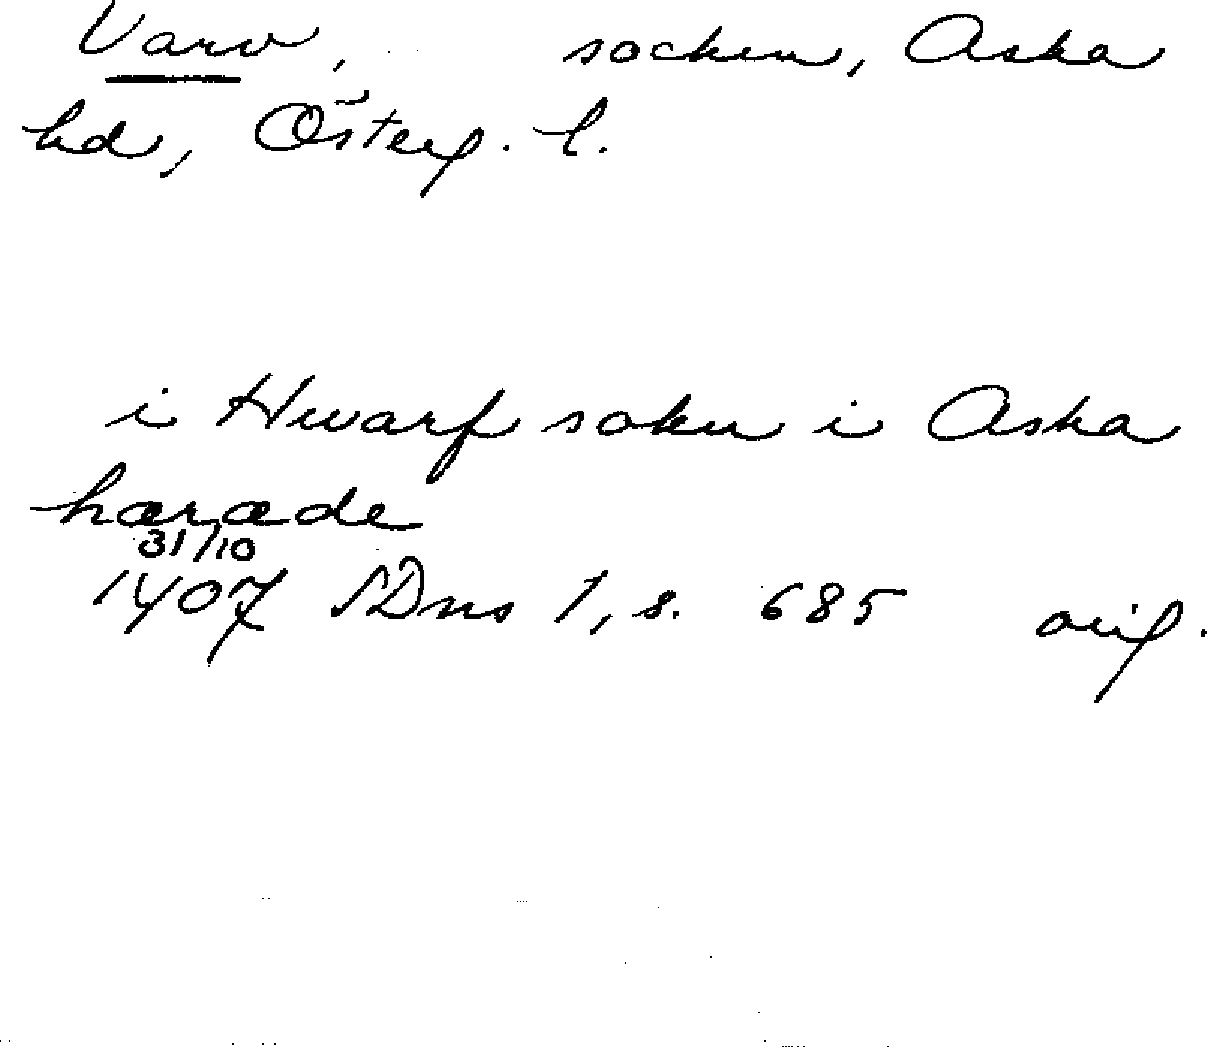 Varv, socken, Aska
hd, Österg. l.
i Hwarf sokn i Aska
hæræde
31/10
1407 SDns 1, s. 685 orig.